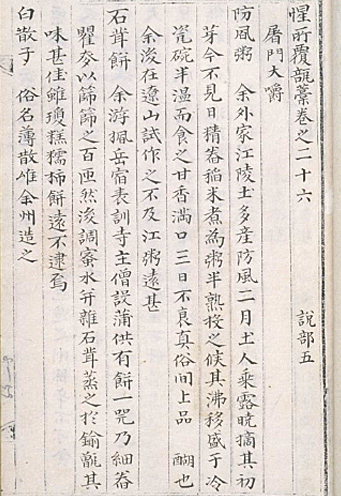 惺所覆瓿藁卷之二十六 說部五
屠門大嚼
防風粥 余外家江陵土多產防風二月土人乘露曉摘其初
芽令不見日精舂稻米煮為粥半熟投之候其沸移盛于冷
瓷碗半溫而食之甘香滿口三日不衰真俗間上品 醐也
余後在遼山試作之不及江粥遠甚
石茸餅 余游楓岳宿表訓寺主僧設蒲供有餅一咒乃細舂
瞿麥以篩篩之百匝然後調蜜水并雜石茸蒸之於鍮甑其
味甚佳雖瓊糕糯柿餅遠不逮焉
白散子 俗名薄散唯余州造之